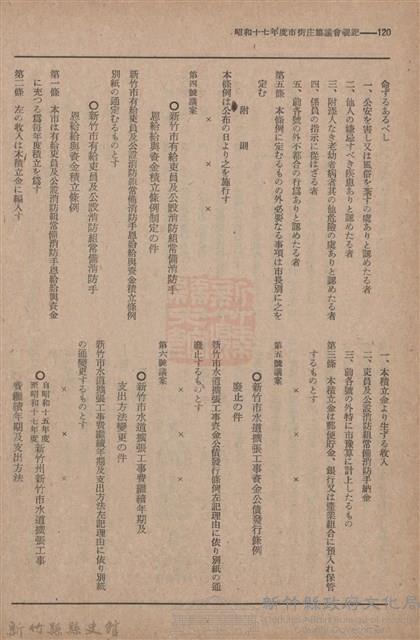 昭和十七年度市街庄協議會概記——120
命ずるあるべし
一、公安を害し又は風俗を紊すの虞ありと認めたる者
二、他人の嫌忌すべき疾患ありと認めたる者
三、附添人なき老幼者病者其の他危險の虞ありと認めたる者
四、係員の指示に從はざる者
五、前各號の外不都合の行爲ありと認めたる者
第五條 本條例に定むるものの外必要なる事項は市長別に之を
定む
附則
本條例は公布の日より之を施行す
× × ×
第四號議案
○新竹市有給吏員及公設消防組常備消防手
恩給給與資金積立條例制定の件
新竹市有給吏員及公設消防組常備消防手恩給給與資金積立條例
別紙の通定むるものとす
○新竹市有給吏員及公設消防組常備消防手
恩給給與資金積立條例
第一條 本市は有給吏員及公設消防組常備消防手恩給給與資金
に充つる爲每年度積立を爲す
第二條 左の收入は本積立金に編入す
一、本積立金より生ずる收入
二、吏員及公設消防組常備消防手納金
三、前各號の外特に市豫算に計上したるもの
第三條 本積立金は郵便貯金、銀行又は產業組合に預入れ保管
するものとす
× × ×
第五號議案
○新竹市水道擴張工事資金公債發行條例
廢止の件
新竹市水道擴張工事資金公債發行條例左記理由に依り別紙の通
廢止するものとす
× × ×
第六號議案
○新竹市水道擴張工事費繼續年期及
支出方法變更の件
新竹市水道擴張工事費繼續年期及支出方法左記理由に依り別紙
の通變更するものとす
× × ×
○自昭和十五年度至昭和十七年度新竹州新竹市水道擴張工事
費繼續年期及支出方法
新竹縣政府文化局
新竹縣縣史館